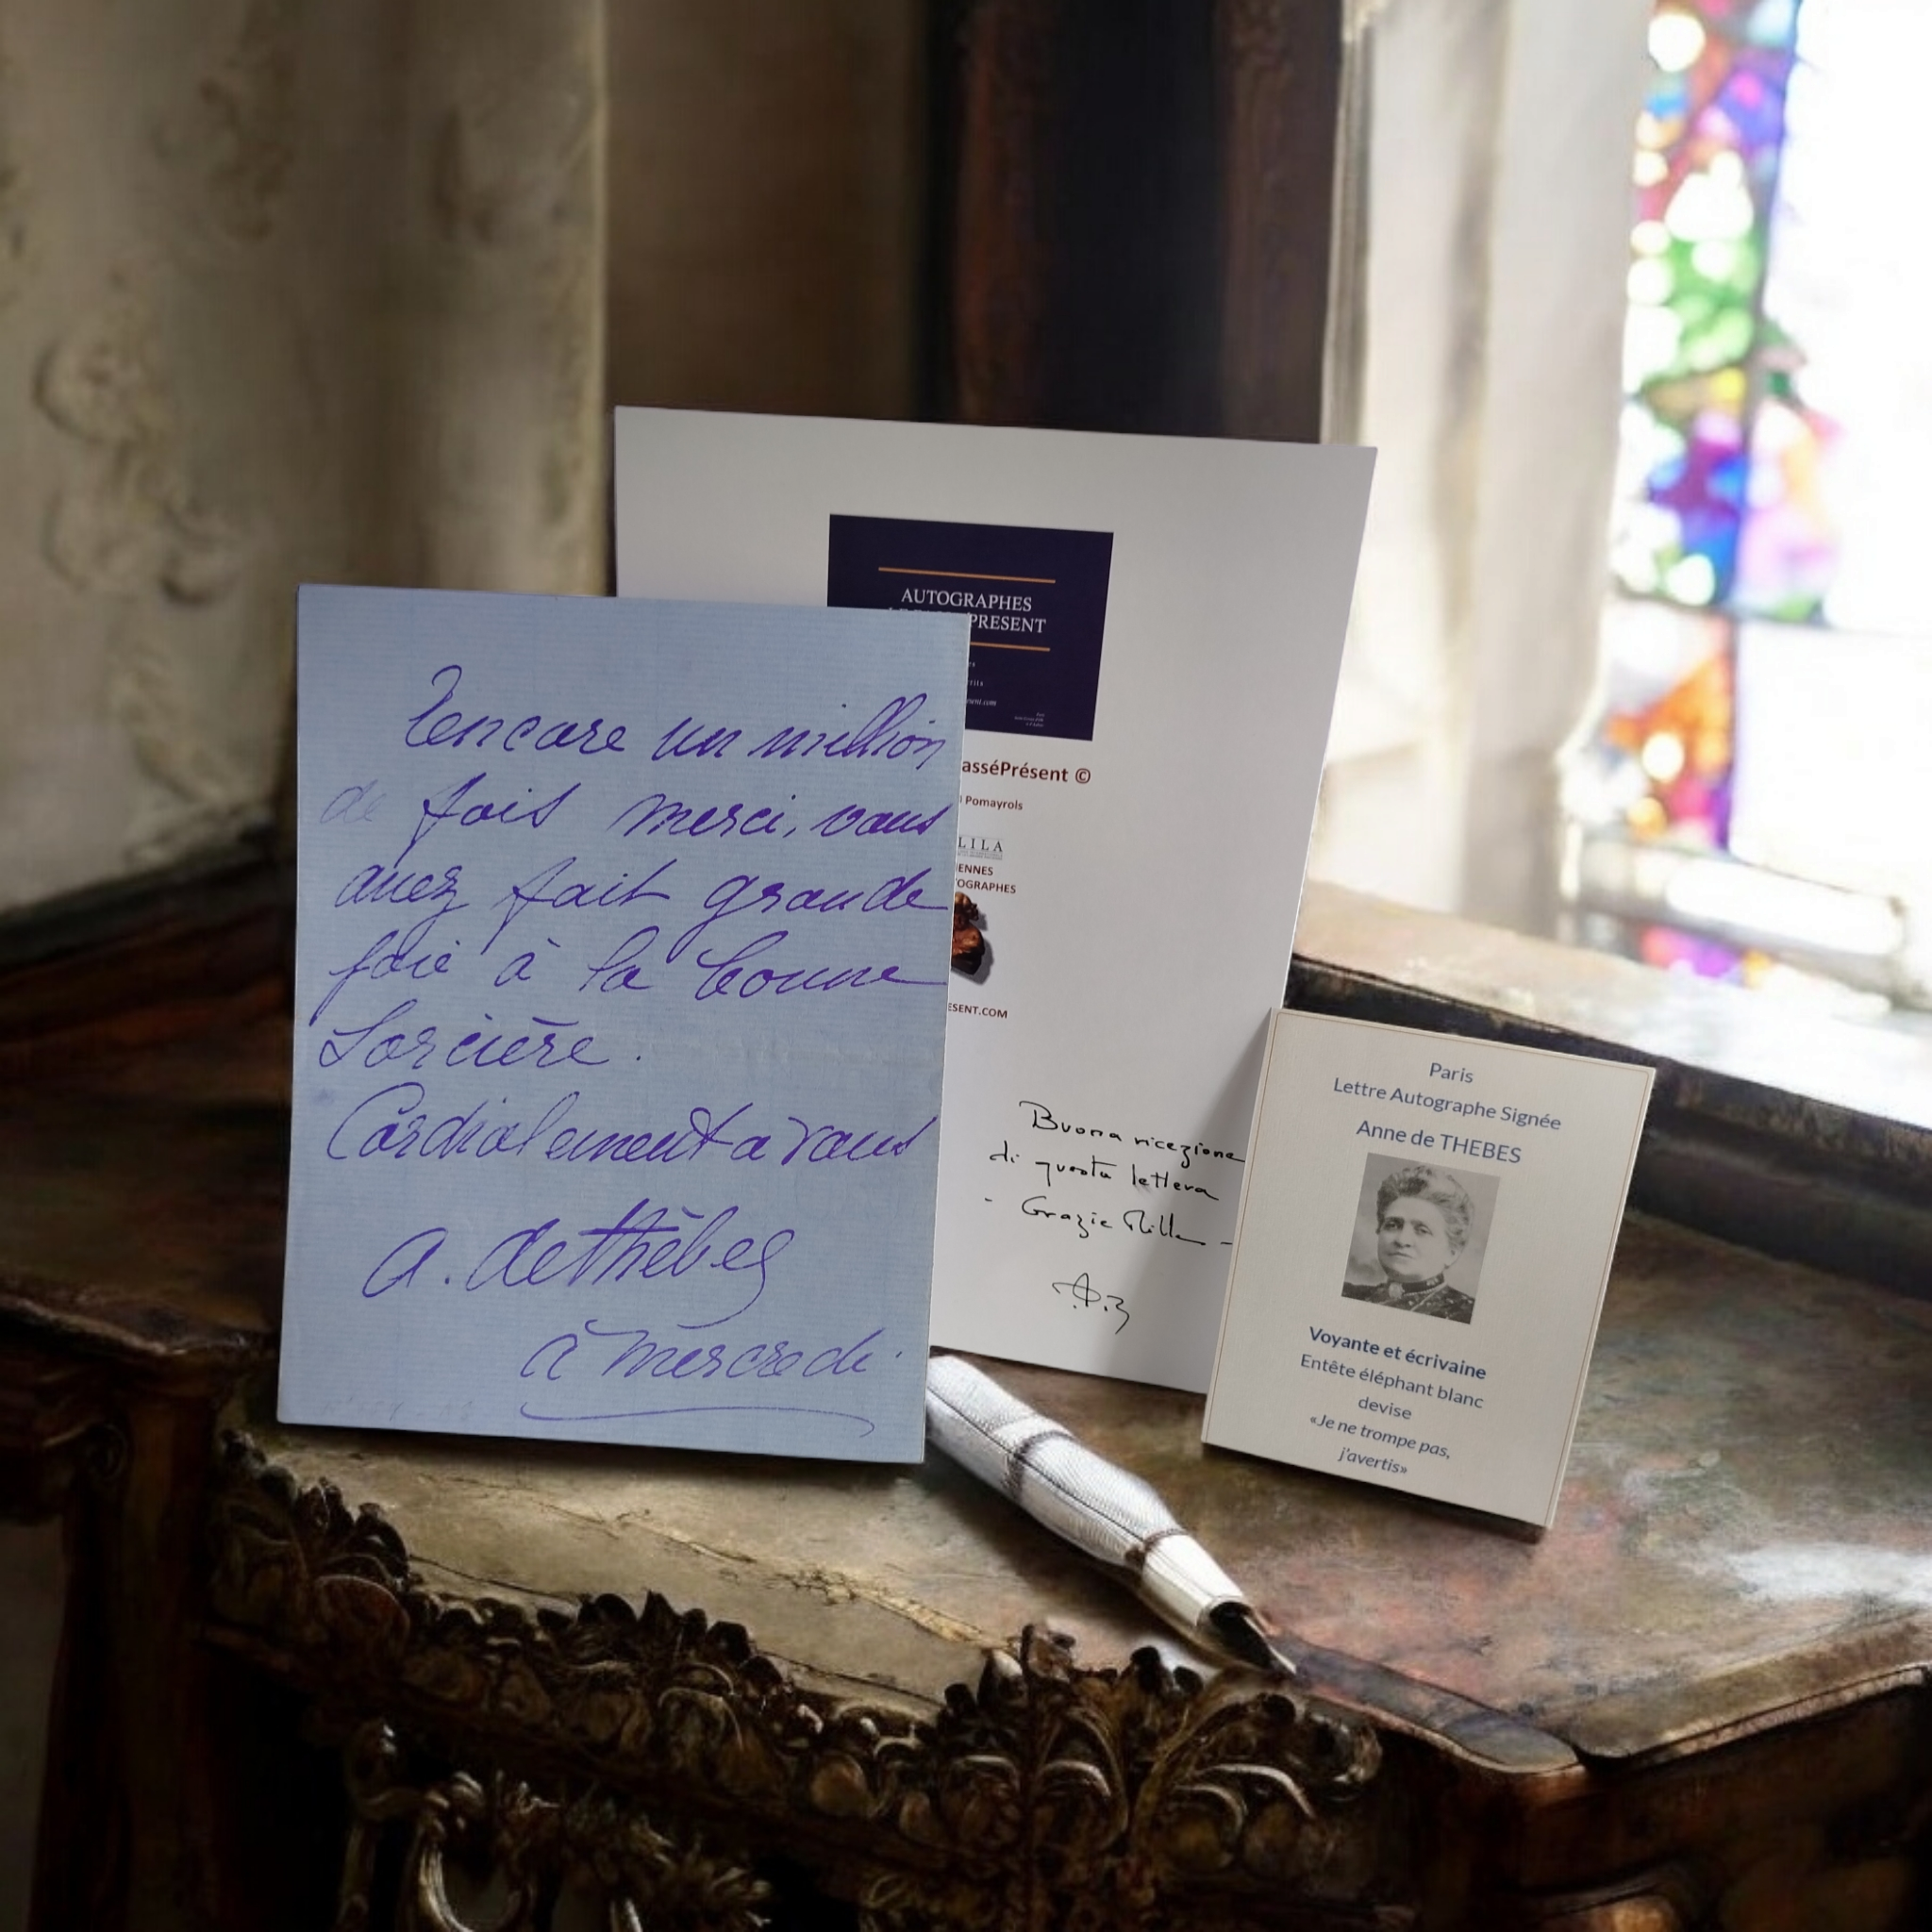 encore un million
de fois merci, vous
avez fait grande
joie à la bonne
Sorcière.
Cordialement a vous
a. de Thèbes
à mercredi.
AUTOGRAPHES
PRESENT
esent.com
asséPrésent ©
Pomayrols
LILA
IENNES
TOGRAPHES
ESENT.COM
Buona ricezione
di questa lettera
- Grazie Mille -
Paris
Lettre Autographe Signée
Anne de THEBES
Voyante et écrivaine
Entête éléphant blanc
devise
«Je ne trompe pas,
j'avertis»